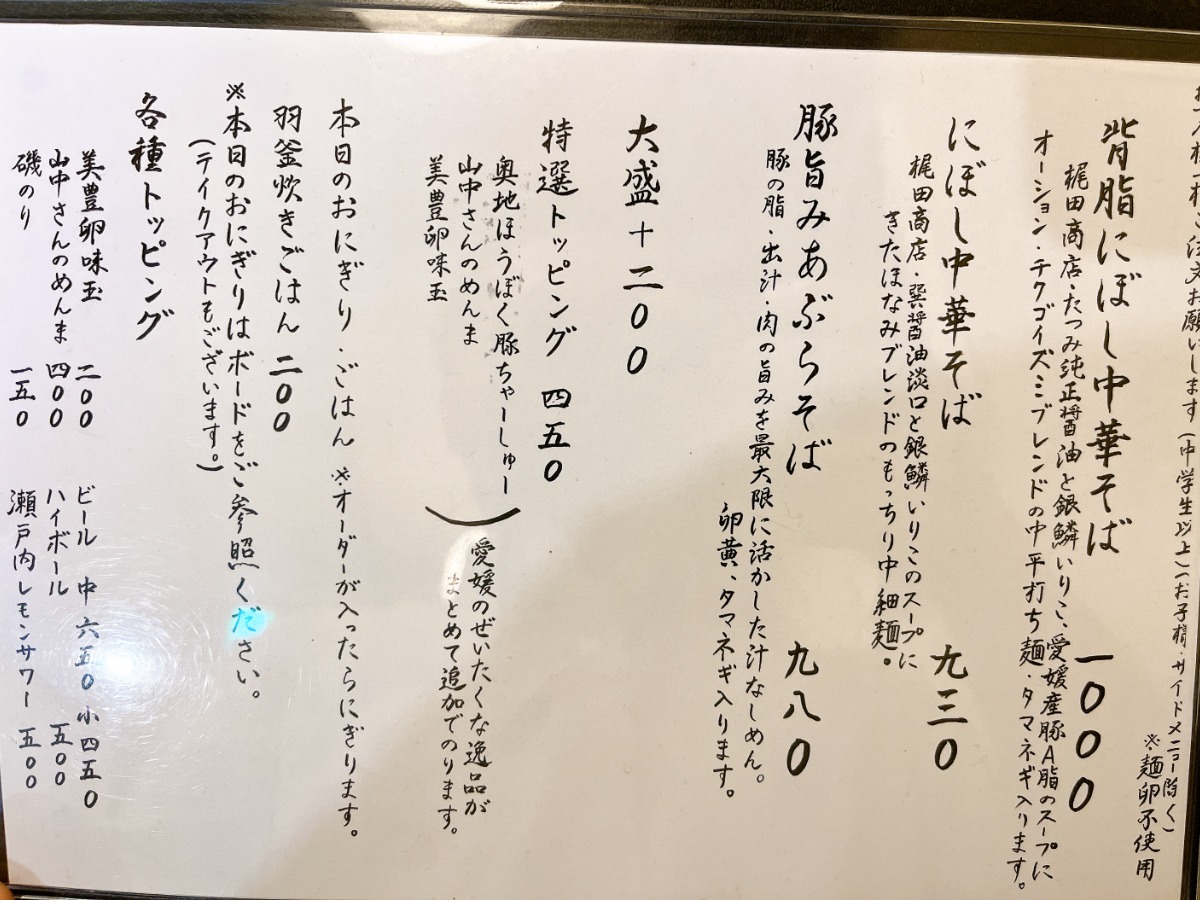 ご注文お願いします(中学生以上)(お子様、サイドメニュー除く)
※麺卵不使用
背脂にぼし中華そば 一000
梶田商店・たつみ純正醤油と銀鱗いりこ、愛媛産豚A脂のスープに
オーション・チクゴイズミブレンドの中平打ち麺・タマネギ入ります。
にぼし中華そば 九三0
梶田商店・巽醤油淡口と銀鱗いりこのスープに
きたほなみブレンドのもっちり中細麺。
豚旨みあぶらそば 九八0
豚の脂・出汁・肉の旨みを最大限に活かした汁なしめん。
卵黄、タマネギ入ります。
大盛+二00
特選トッピング 四五0
奥地ほうぼく豚ちゃーしゅー
山中さんのめんま
美豊卵味玉
愛媛のぜいたくな逸品が
まとめて追加でのります。
本日のおにぎり・ごはん ※オーダーが入ったらにぎります。
羽釜炊きごはん 二00
※本日のおにぎりはボードをご参照ください。
(テイクアウトもございます。)
各種トッピング
美豊卵味玉 二00
山中さんのめんま 四00
磯のり 一五0
ビール 中六五0 小四五0
ハイボール 五00
瀬戸内レモンサワー 五00